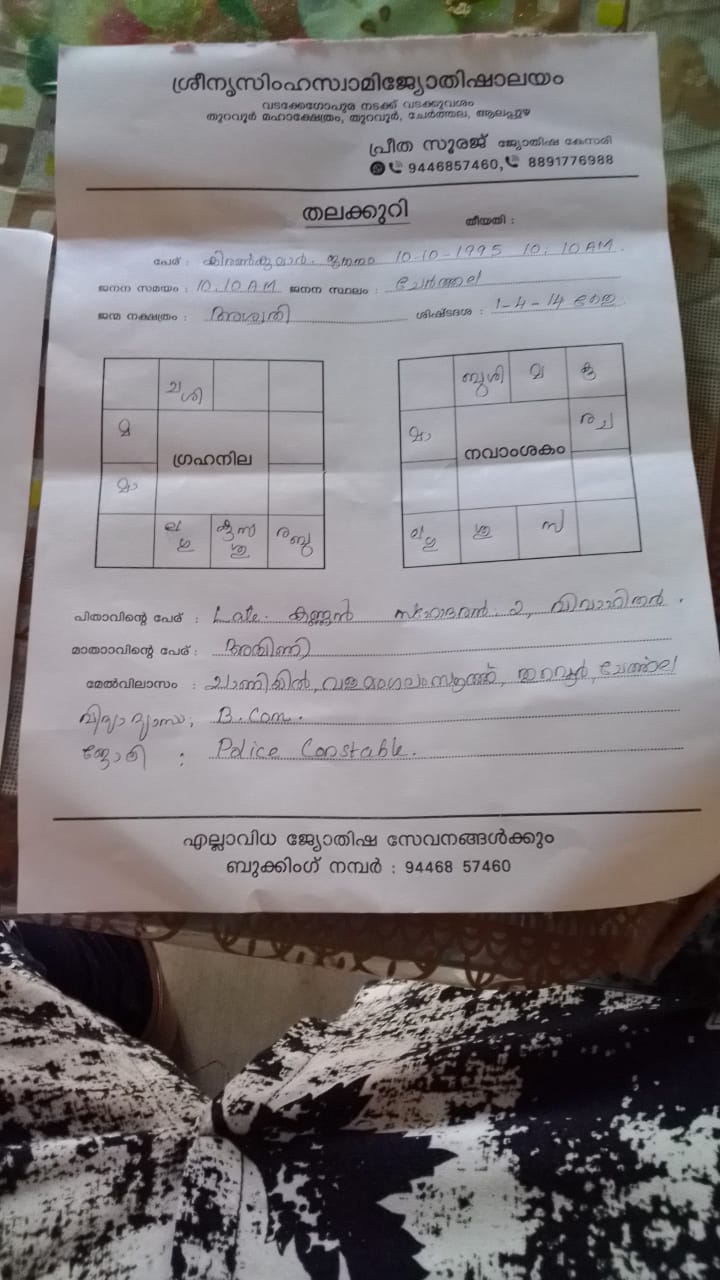 ശ്രീനൃസിംഹസ്വാമിജ്യോതിഷാലയം
വടക്കേഗോപുര നടക്ക് വടക്കുവശം
തുറവൂർ മഹാക്ഷേത്രം, തുറവൂർ, ചേർത്തല, ആലപ്പുഴ
പ്രീത സൂരജ് ജ്യോതിഷ കേസരി
9446857460, 8891776988
തലക്കുറി
തീയതി :
പേര് : കിരൺകുമാർ. ജനനം 10-10-1995 10.10 AM.
ജനന സമയം : 10.10 AM ജനന സ്ഥലം : ചേർത്തല
ജന്മ നക്ഷത്രം : അശ്വതി ശിഷ്ടദശ : 1-4-14
ച ശി
മ
ഗ്രഹനില
മാ
ല ഗു
ര ബു
ബു ശി മ കു
മാ ര ച
നവാംശകം
ല ഗു ശു സ
പിതാവിന്റെ പേര് : Late. കണ്ണൻ സഹോദരൻ. 2, വിവാഹിതർ.
മാതാാവിന്റെ പേര് :
മേൽവിലാസം : തുറവൂർ, ചേർത്തല
വിദ്യാഭ്യാസം : B.Com.
ജോലി : Police Constable.
എല്ലാവിധ ജ്യോതിഷ സേവനങ്ങൾക്കും
ബുക്കിംഗ് നമ്പർ : 94468 57460